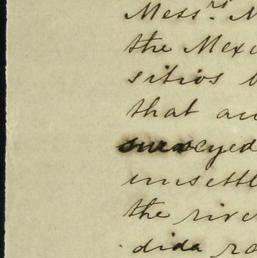 Messrs. M
the Mexi
sitios b
that au
surveyed
unsettl
the river
dida ra